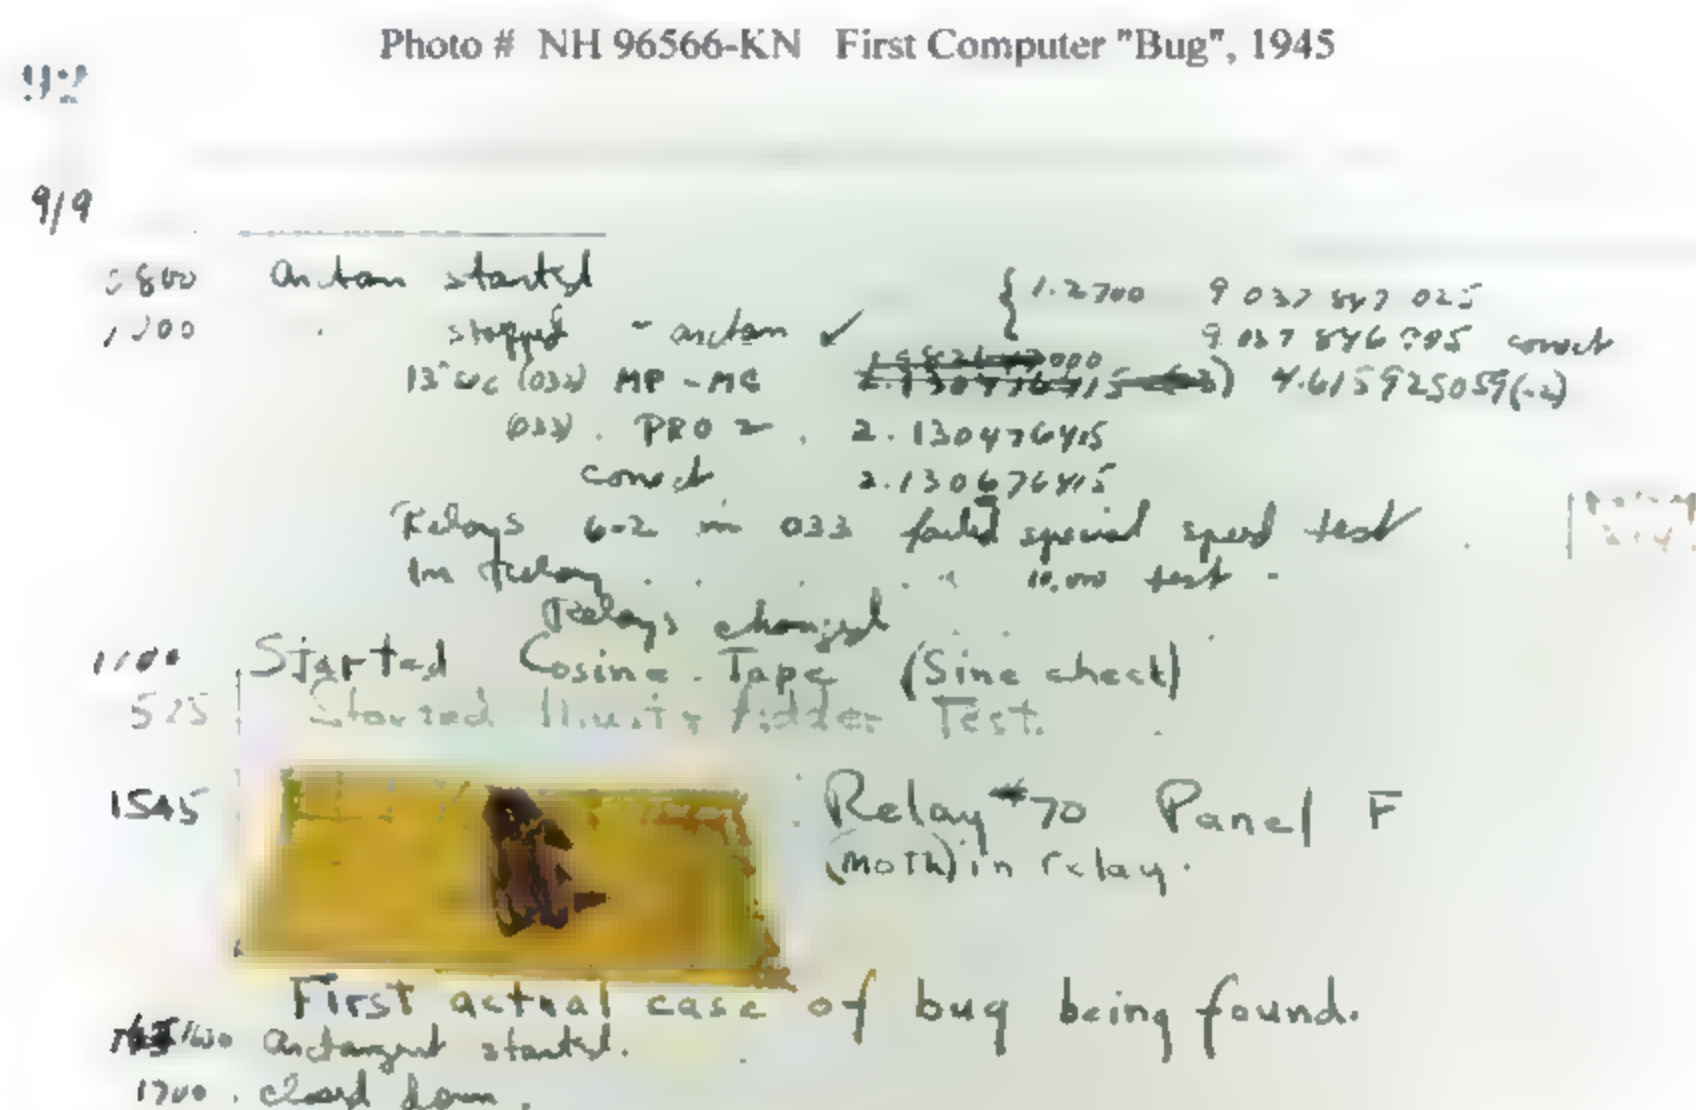 Photo # NH 96566-KN First Computer "Bug", 1945
9/9
0800 antan started
stopped - antan ✓ { 1.2700 9 037 847 025
9 037 846 correct
13" (032) MP - MC 4.615925059(-2)
(033) PRO 2 2.130476415
correct 2.130676415
Relays 6-2 in 033 failed special speed test
In relay 10.000 test
Relays changed
1100 Started Cosine Tape (Sine check)
1525 Started Adder Test.
1545 Relay #70 Panel F
(moth) in relay.
First actual case of bug being found.
1630 antangent started.
1700 closed down.